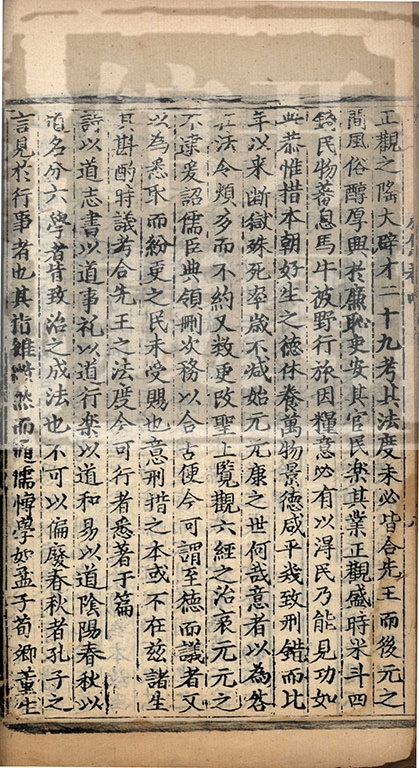 正觀之隆大辟才二十九考其法度未必皆合先王而後元之
間風俗醇厚興於廉恥吏安其官民樂其業正觀盛時米斗四
錢民物蕃息馬牛被野行旅因糧意必有以淂民乃能見功如
此恭惟措本朝好生之德休養萬物景德咸平㡬致刑錯而比
年以来断獄殊死率歳不减始元元康之世何㢤意者以為咎
在法令煩多而不約又数更改聖上覽觀六經之治哀元元之
不逮爰詔儒臣典領刪次務以合古便今可謂至德而議者又
以為悉取而紛更之民未受賜也意刑措之本或不在兹諸生
其斟酌時議若合先王之法度今可行者悉著于篇
詩以道志書以道事礼以道行楽以道和易以道隂陽春秋以
道名分六學者皆致治之成法也不可以偏廢春秋者孔子之
言見於行事者也其指雖然而通儒愽學如孟子荀卿董生